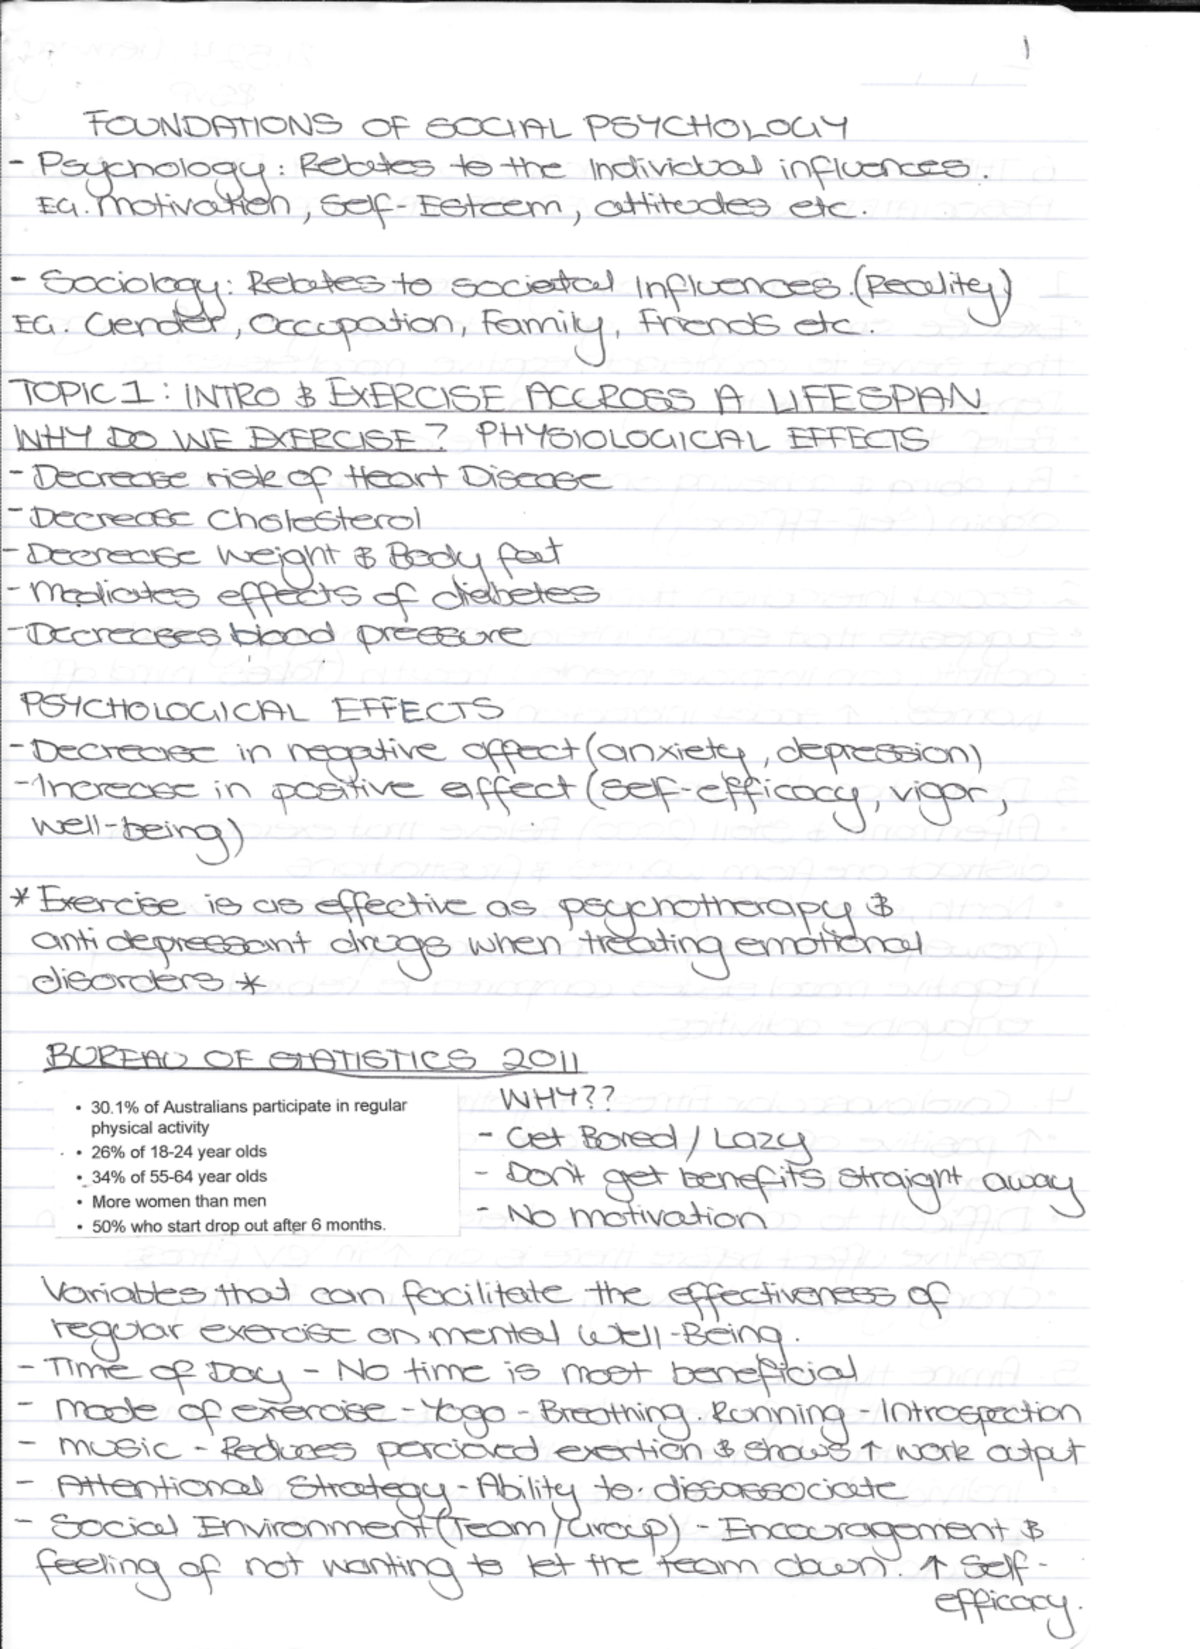 1
FOUNDATIONS OF SOCIAL PSYCHOLOGY
- Psychology: Relates to the Individual influences.
EG. Motivation, Self-Esteem, attitudes etc.
- Sociology: Relates to societal Influences. (Reality)
EG. Gender, Occupation, Family, Friends etc.
TOPIC 1: INTRO & EXERCISE ACCROSS A LIFESPAN
WHY DO WE EXERCISE? PHYSIOLOGICAL EFFECTS
- Decrease risk of Heart Disease
- Decrease Cholesterol
- Decrease Weight & Body fat
- Mediates effects of diabetes
- Decreases blood pressure
PSYCHOLOGICAL EFFECTS
- Decrease in negative affect (anxiety, depression)
- Increase in positive affect (Self-efficacy, vigor,
well-being)
* Exercise is as effective as psychotherapy &
anti depressant drugs when treating emotional
disorders *
BUREAU OF STATISTICS 2011
• 30.1% of Australians participate in regular
physical activity
• 26% of 18-24 year olds
• 34% of 55-64 year olds
• More women than men
• 50% who start drop out after 6 months.
WHY??
- Get Bored / Lazy
- Don't get benefits straight away
- No motivation
Variables that can facilitate the effectiveness of
regular exercise on mental Well-Being.
- Time of Day - No time is most beneficial
- Mode of exercise - Yoga - Breathing. Running - Introspection
- Music - Reduces percieved exertion & shows ↑ work output
- Attentional Strategy - Ability to dissassociate
- Social Environment (Team/Group) - Encouragement &
feeling of not wanting to let the team down. ↑ Self-
efficacy.